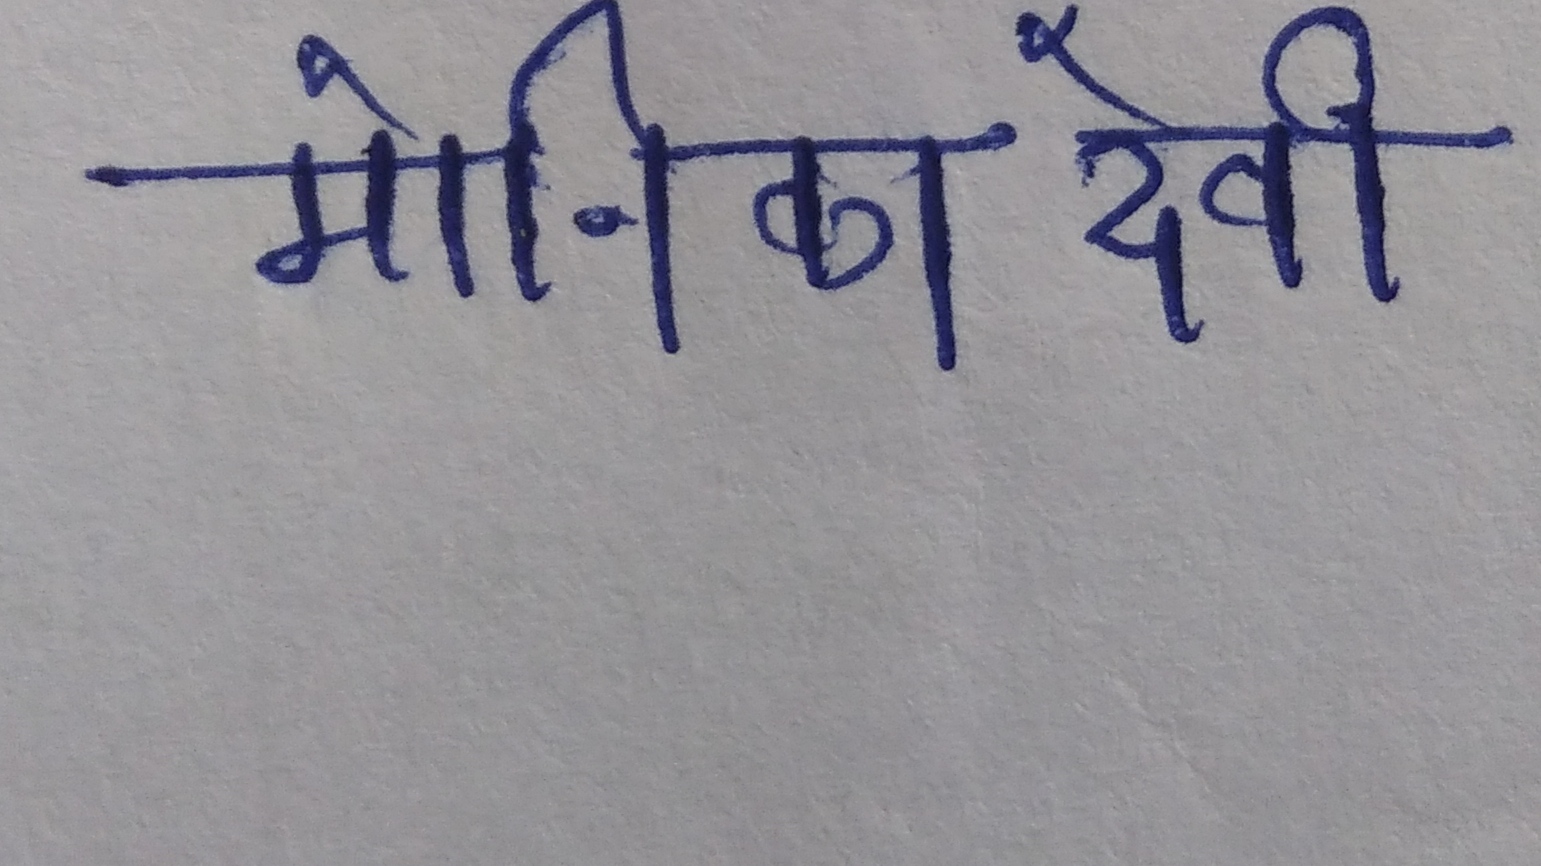 मोनिका देवी